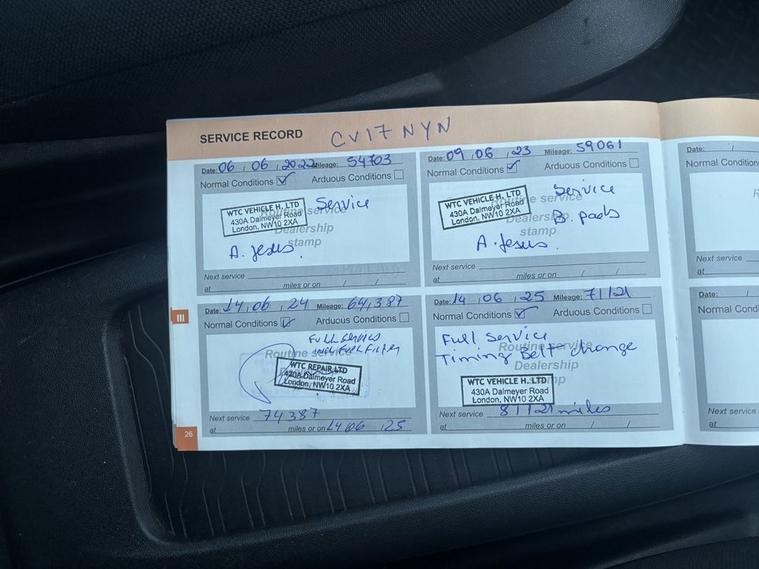 SERVICE RECORD CV17 NYN
Date: 06 , 06 , 2022 Mileage: 54703
Normal Conditions Arduous Conditions
Routine service
Service
WTC VEHICLE H. LTD
430A Dalmeyer Road
London, NW10 2XA
Dealership
stamp
A. Jesus.
Next service
at miles or on / /
Date: 09 , 06 , 23 Mileage: 59061
Normal Conditions Arduous Conditions
Routine service
Service
WTC VEHICLE H. LTD
430A Dalmeyer Road
London, NW10 2XA
Dealership
B. pads
stamp
A. Jesus.
Next service
at miles or on / /
Date: 14 , 06 , 24 Mileage: 64,387
Normal Conditions Arduous Conditions
FULL Service
Routine service
WTC REPAIR LTD
430A Dalmeyer Road
London, NW10 2XA
Next service 74387
at miles or on 14 06 , 25
Date: 14 , 06 , 25 Mileage: 71121
Normal Conditions Arduous Conditions
Full Service
Routine service
Timing Belt change
Dealership
stamp
WTC VEHICLE H. LTD
430A Dalmeyer Road
London, NW10 2XA
Next service 81121 miles
at miles or on / /
Date: /
Normal Condition
Next service
at
Date: /
Normal Cond
Next service
at
III
26